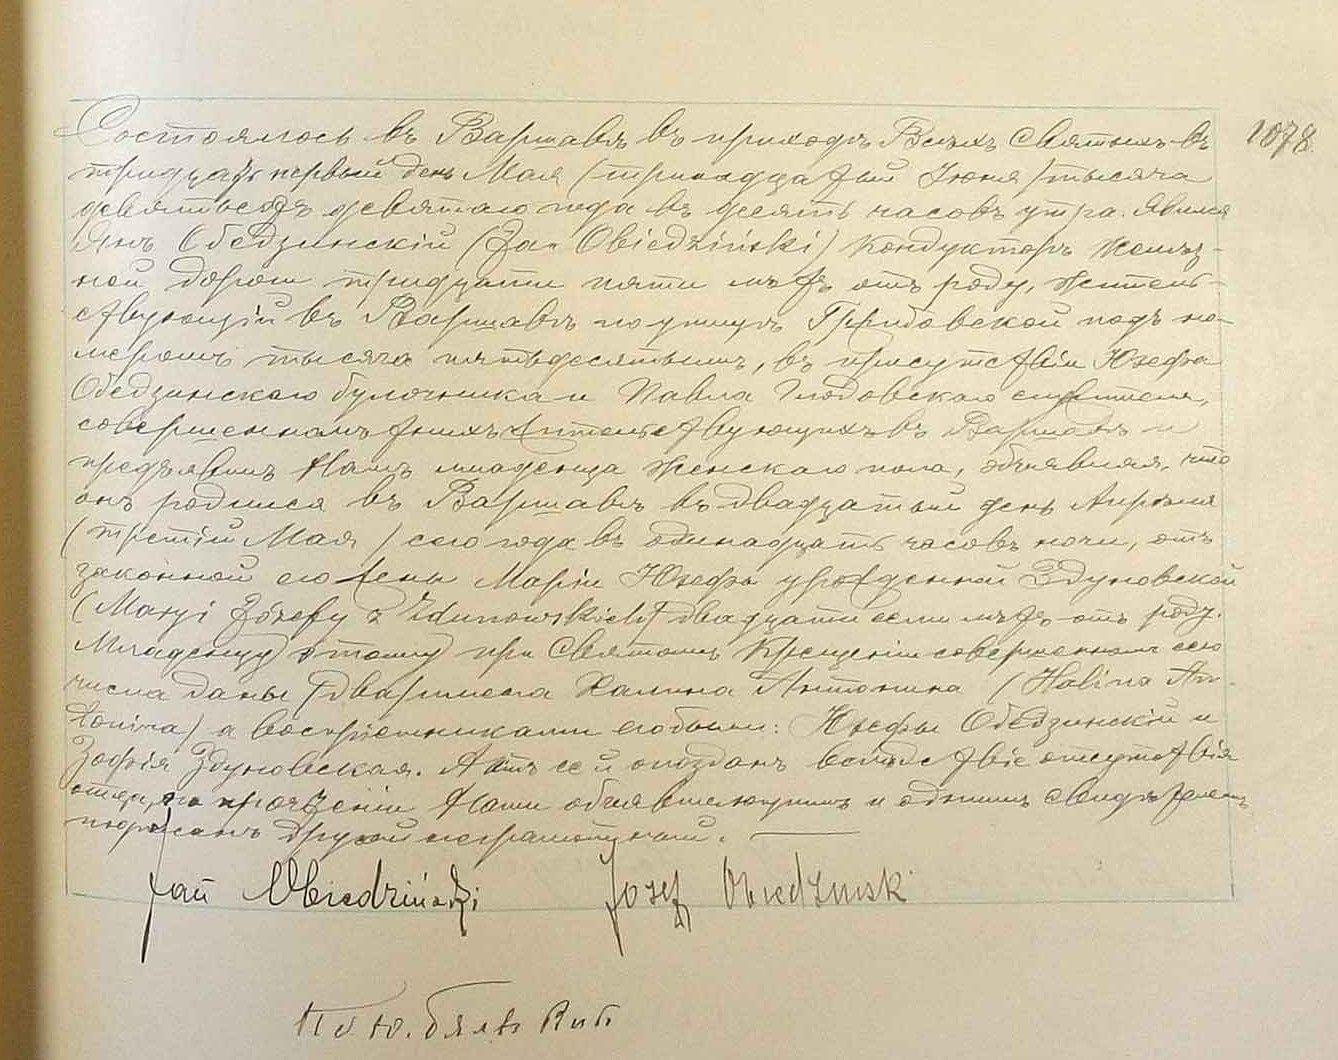 Состоялось въ Варшавѣ въ приходѣ Всѣхъ Святыхъ въ
1078.
тридцать первый день Мая (тринадцатый Іюня) тысяча
девятьсотъ девятаго года въ десять часовъ утра. Явился
Янъ Обедзинскій (Jan Obiedziński) кондукторъ желѣз-
ной дороги тридцати пяти лѣтъ отъ роду, житель-
ствующій въ Варшавѣ по улицѣ Гржибовской подъ но-
меромъ тысяча пятьдесятымъ, въ присутствіи Юзефа
Обедзинскаго булочника и Павла служителя,
совершеннолѣтнихъ жительствующихъ въ Варшавѣ и
предъявилъ Намъ младенца женскаго пола, объявляя, что
онъ родился въ Варшавѣ въ двадцатый день Апрѣля
(третій Мая) сего года въ одинадцать часовъ ночи, отъ
законной его жены Маріи Юзефы урожденной Здуновской
(Maryi Józefy z Zdunowskich) двадцати семи лѣтъ отъ роду.
Младенцу этому при Святомъ Крещеніи совершенномъ сего
числа даны два имена Халина Антонина (Halina An-
tonina) а воспріемниками его были: Юзефъ Обедзинскій и
Зофія Здуновская. Актъ сей опозданъ вслѣдствіе отсутствія
отца, по прочтеніи Нами объявляющимъ и однимъ свидѣтелемъ
подписанъ другой неграмотный.
Jan Obiedziński
Józef Obiedzinski